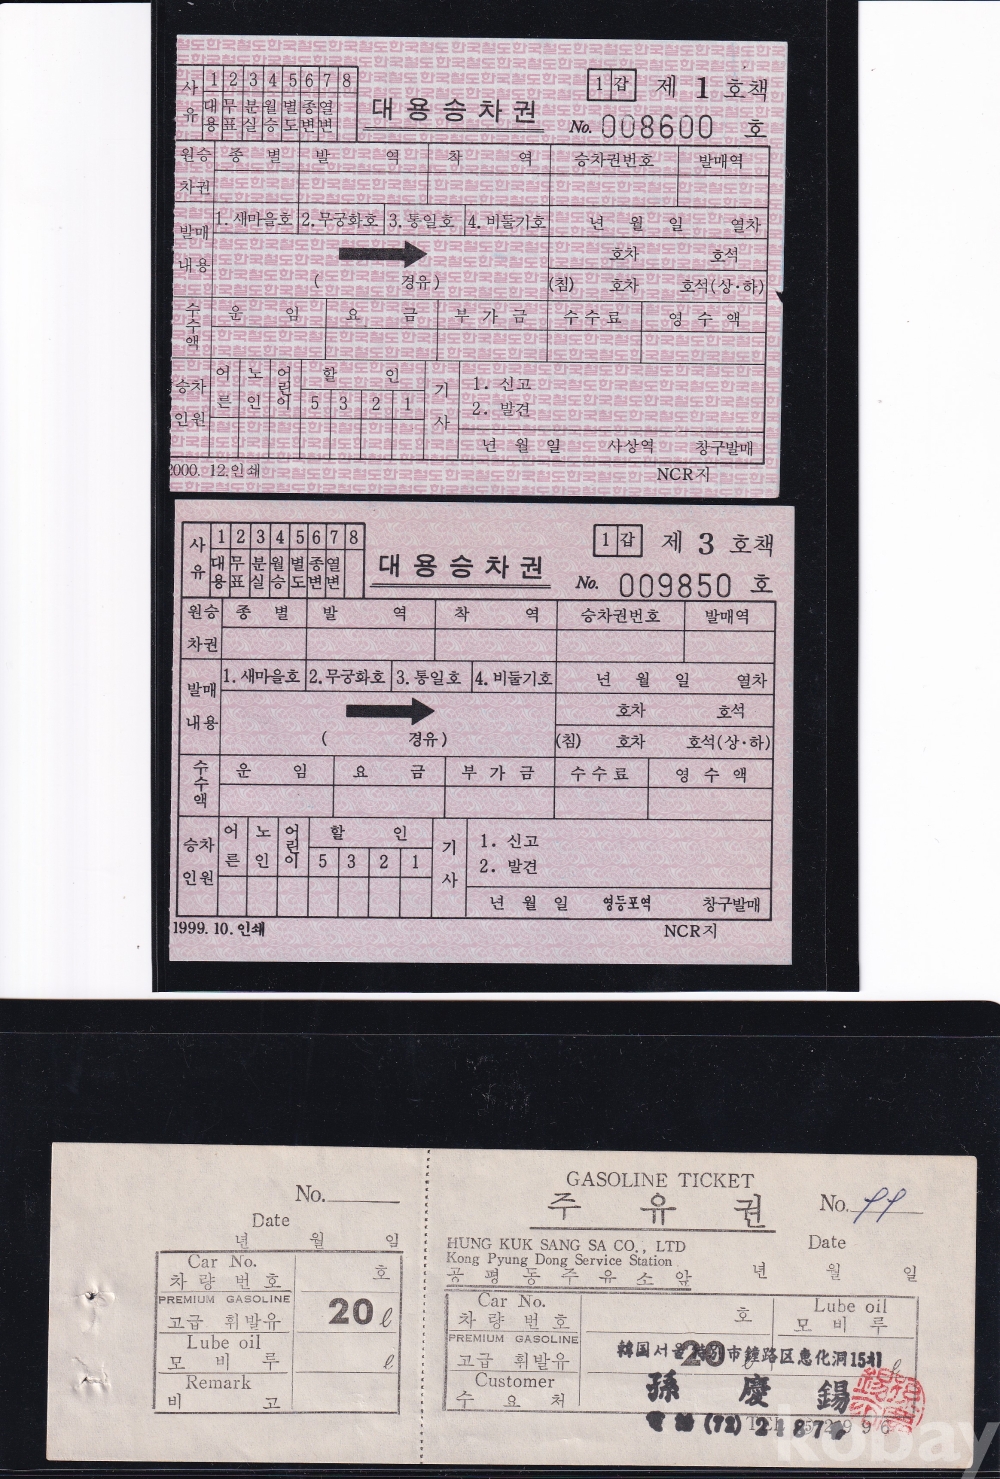 사유 1 2 3 4 5 6 7 8
대용 무표 분실 월승 별도 종변 열변
대용승차권
1 갑 제 1 호책
No. 008600 호
원승차권 종 별 발 역 착 역 승차권번호 발매역
발매내용 1. 새마을호 2. 무궁화호 3. 통일호 4. 비둘기호 년 월 일 열차
호차 호석
( 경유) (침) 호차 호석(상·하)
수수액 운 임 요 금 부 가 금 수수료 영 수 액
승차인원 어른 노인 어린이 할 인 기사 1. 신고
5 3 2 1 2. 발견
년 월 일 사상역 창구발매
2000. 12. 인쇄 NCR지
사유 1 2 3 4 5 6 7 8
대용 무표 분실 월승 별도 종변 열변
대용승차권
1 갑 제 3 호책
No. 009850 호
원승차권 종 별 발 역 착 역 승차권번호 발매역
발매내용 1. 새마을호 2. 무궁화호 3. 통일호 4. 비둘기호 년 월 일 열차
호차 호석
( 경유) (침) 호차 호석(상·하)
수수액 운 임 요 금 부 가 금 수수료 영 수 액
승차인원 어른 노인 어린이 할 인 기사 1. 신고
5 3 2 1 2. 발견
년 월 일 영등포역 창구발매
1999. 10. 인쇄 NCR지
No.
Date
년 월 일
Car No.
차 량 번 호 호
PREMIUM GASOLINE
고급 휘발유 20 ℓ
Lube oil
모 비 루 ℓ
Remark
비 고
GASOLINE TICKET
주 유 권
No. 99
HUNG KUK SANG SA CO., LTD
Kong Pyung Dong Service Station
공 평 동 주 유 소 앞
Date
년 월 일
Car No.
차 량 번 호 호
Lube oil
모 비 루
PREMIUM GASOLINE
고급 휘발유 20 ℓ
韓国서울特別市鍾路区惠化洞15의1
Customer
수 요 처
孫 慶 錫
電話 (72) 2487
kobay